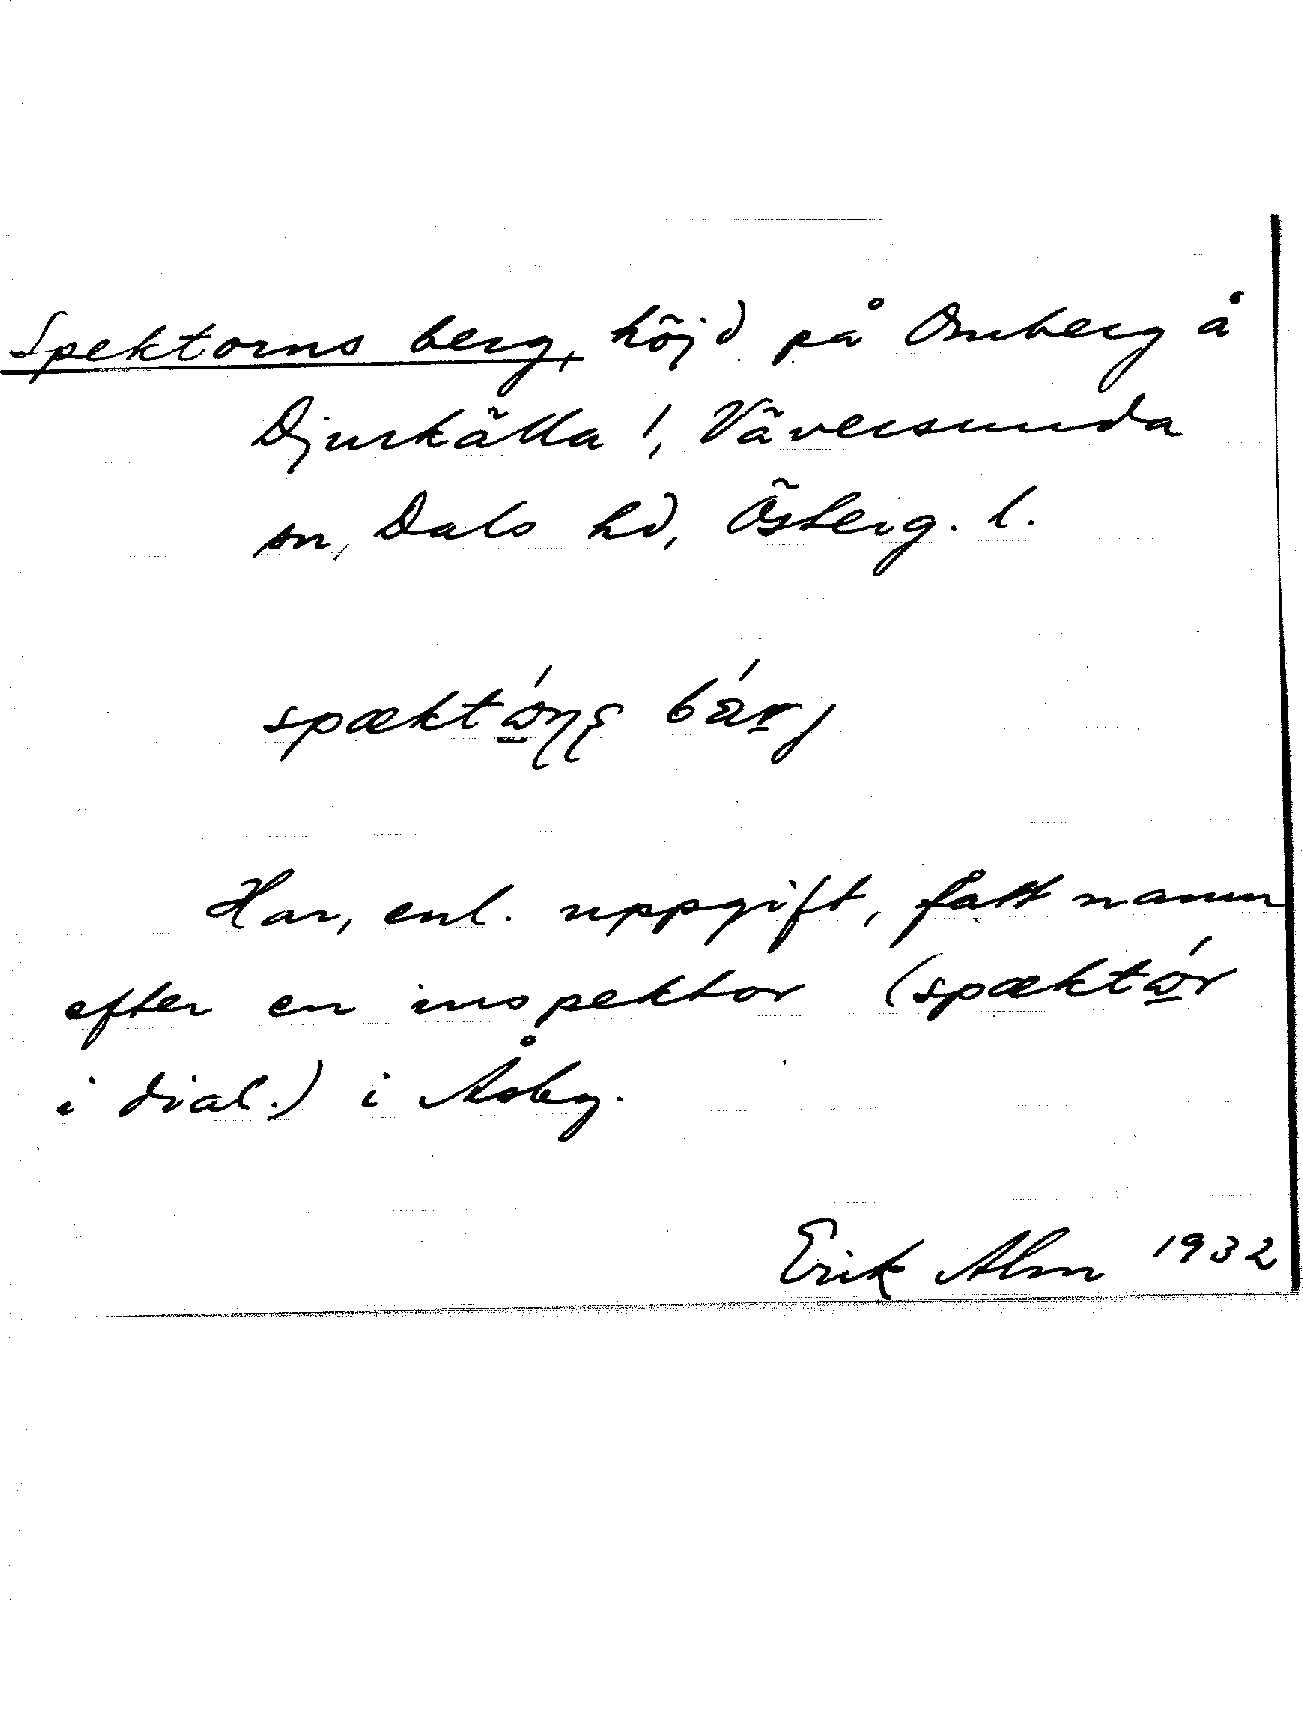 Spektorns berg, höjd på Omberg å
Djurkälla !, Väversunda
sn, Dals hd, Österg. l.
Har, enl. uppgift, fått namn
efter en inspektor (spæktώ̱r
i dial.) i Åsby.
Erik Alm 1932